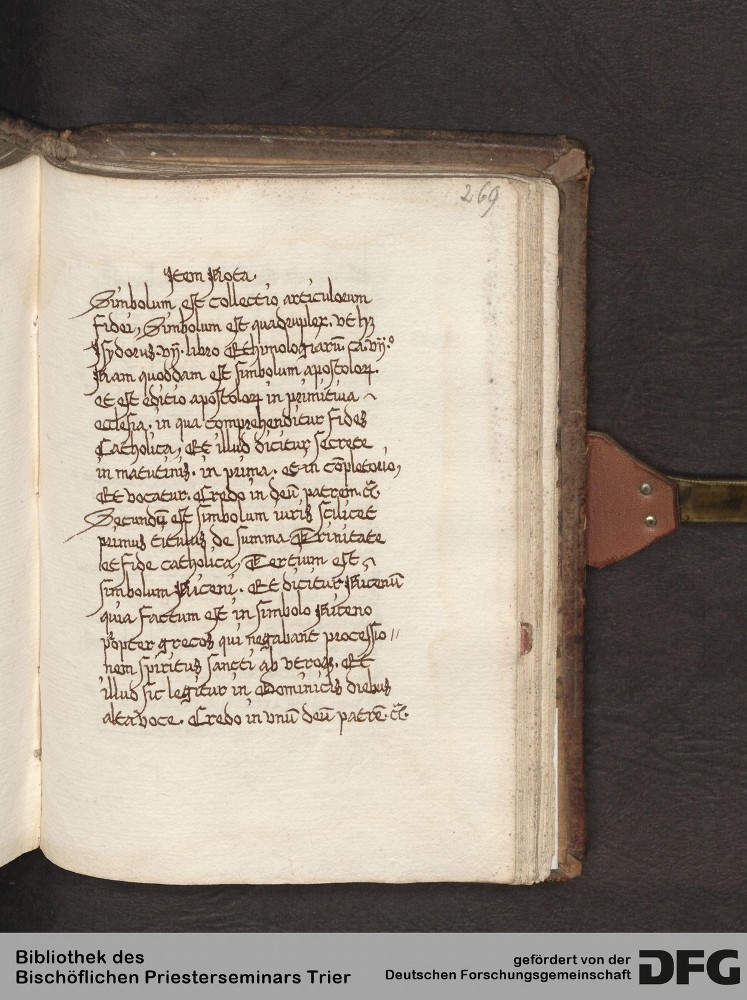 269
Item Nota.
Simbolum est collectio articulorum
fidei, Simbolum est quadruplex. vt hꝫ
Isydorus. vij. libro Ethimologiarū. ca. vij.º
Nam quoddam est simbolum apostolorꝝ.
Et est editio apostolorꝝ in primitiua
ecclesia. in qua comprehenditur fides
Catholica, Et illud dicitur secrete
in matutinis. in prima. et in cōpletorio,
Et vocatur. Credo in deū patrem. ꝛc̄.
Secundū est simbolum iuris scilicet
primus titulus de summa Trinitate
et fide catholica, Tertium est
simbolum Niceni. Et dicitur Nicenū
quia factum est in simbolo Niceno
ꝓpter grecos qui negabant processio //
nem spiritus sancti ab vtroqꝫ. Et
illud sic legitur in Dominicis diebus
alta voce. Credo in vnū deū patrē. ꝛc̄.
Bibliothek des
Bischöflichen Priesterseminars Trier
gefördert von der
Deutschen Forschungsgemeinschaft
DFG